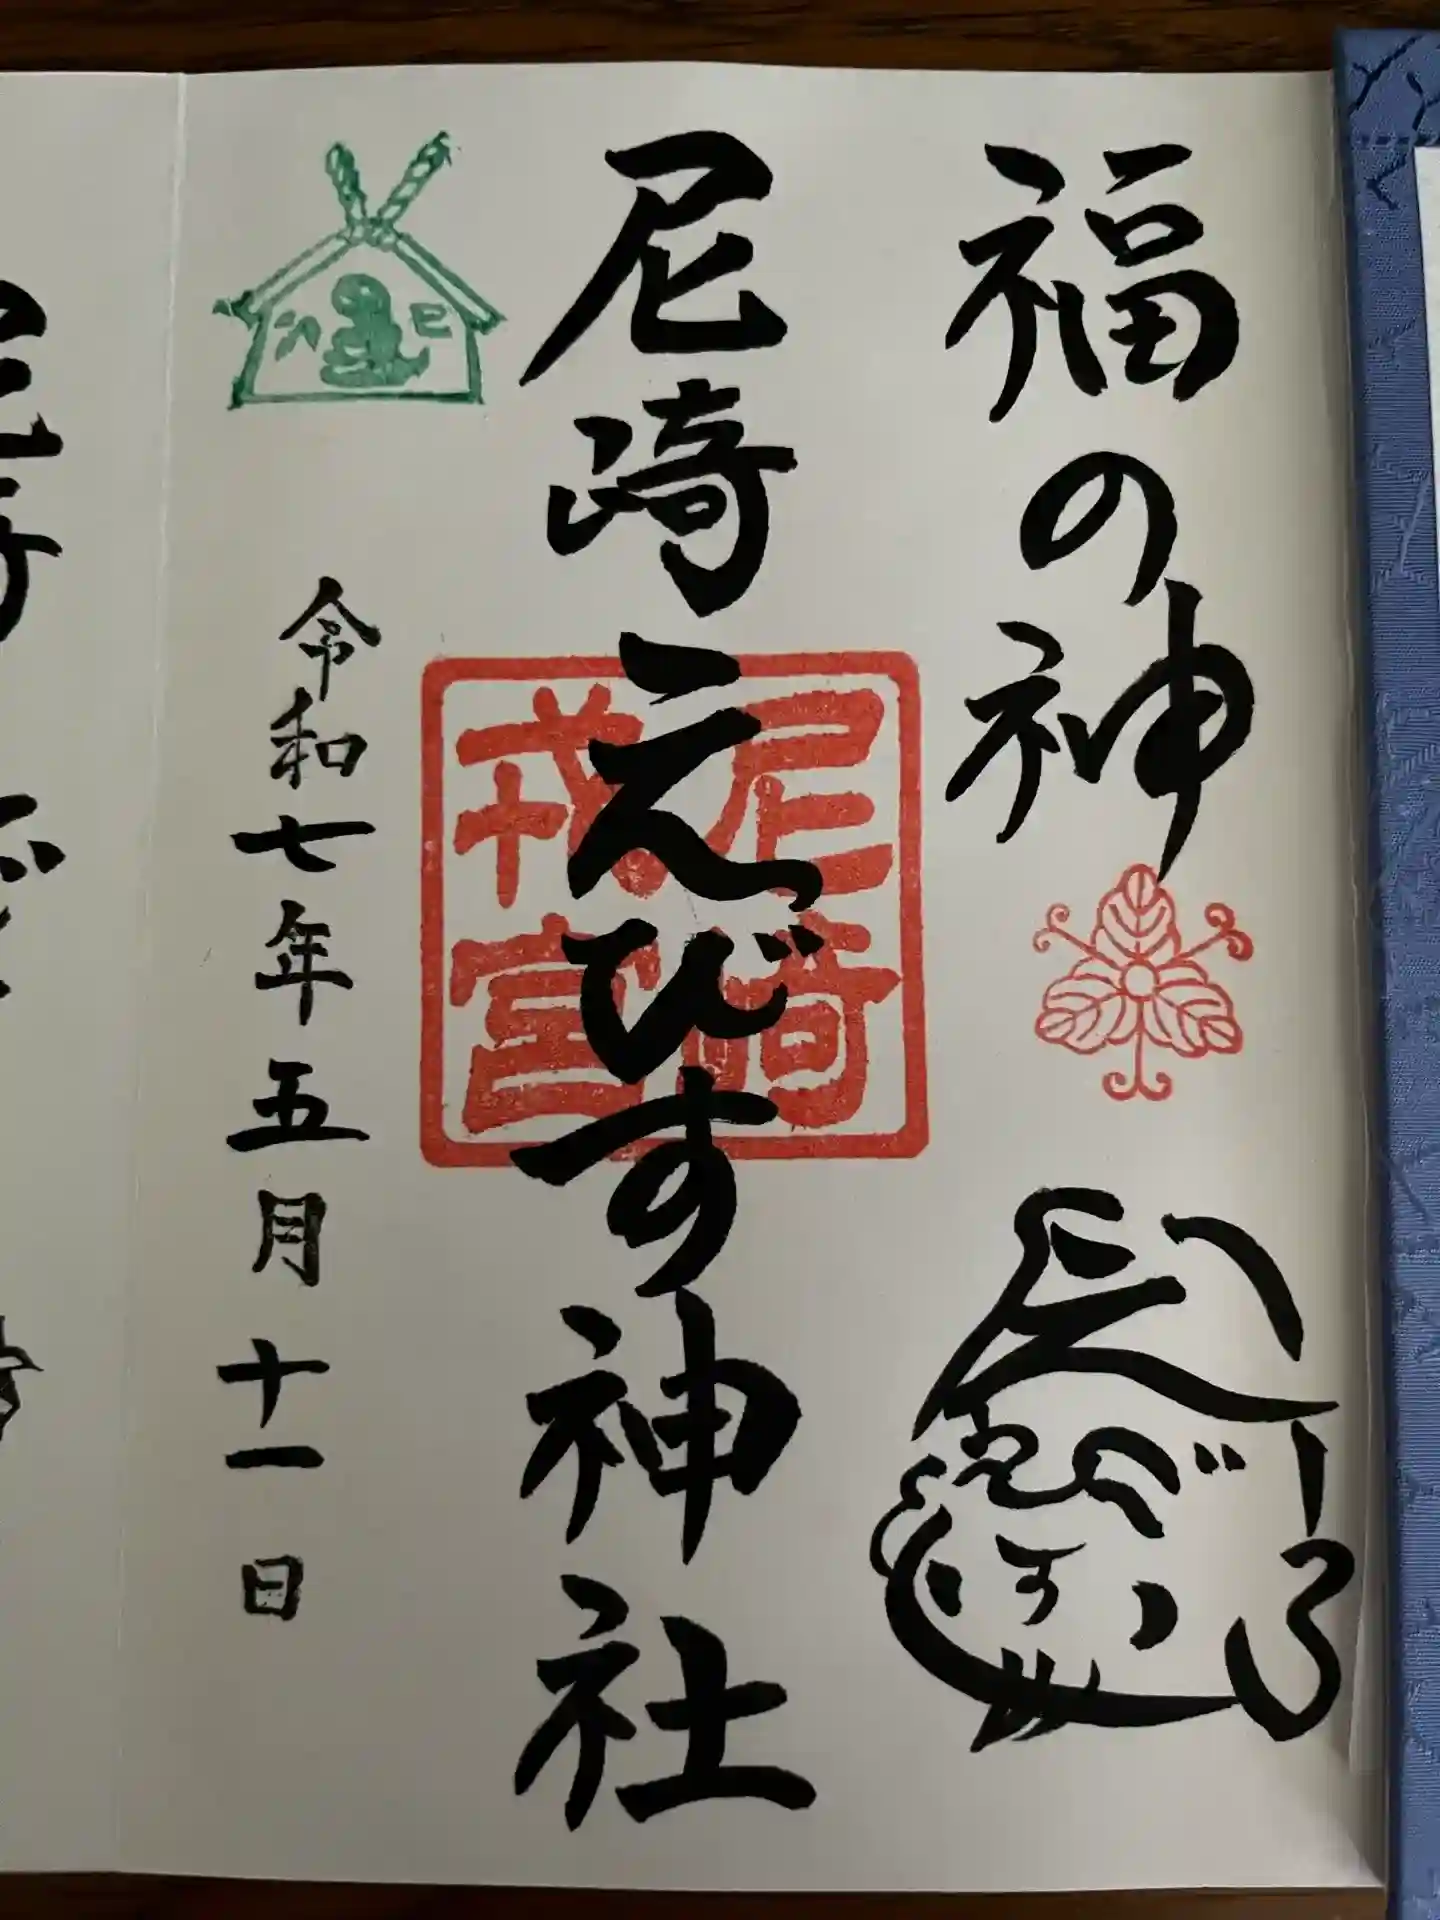 福の神
えびす
尼崎えびす神社
尼崎
戎宮
巳
令和七年五月十一日